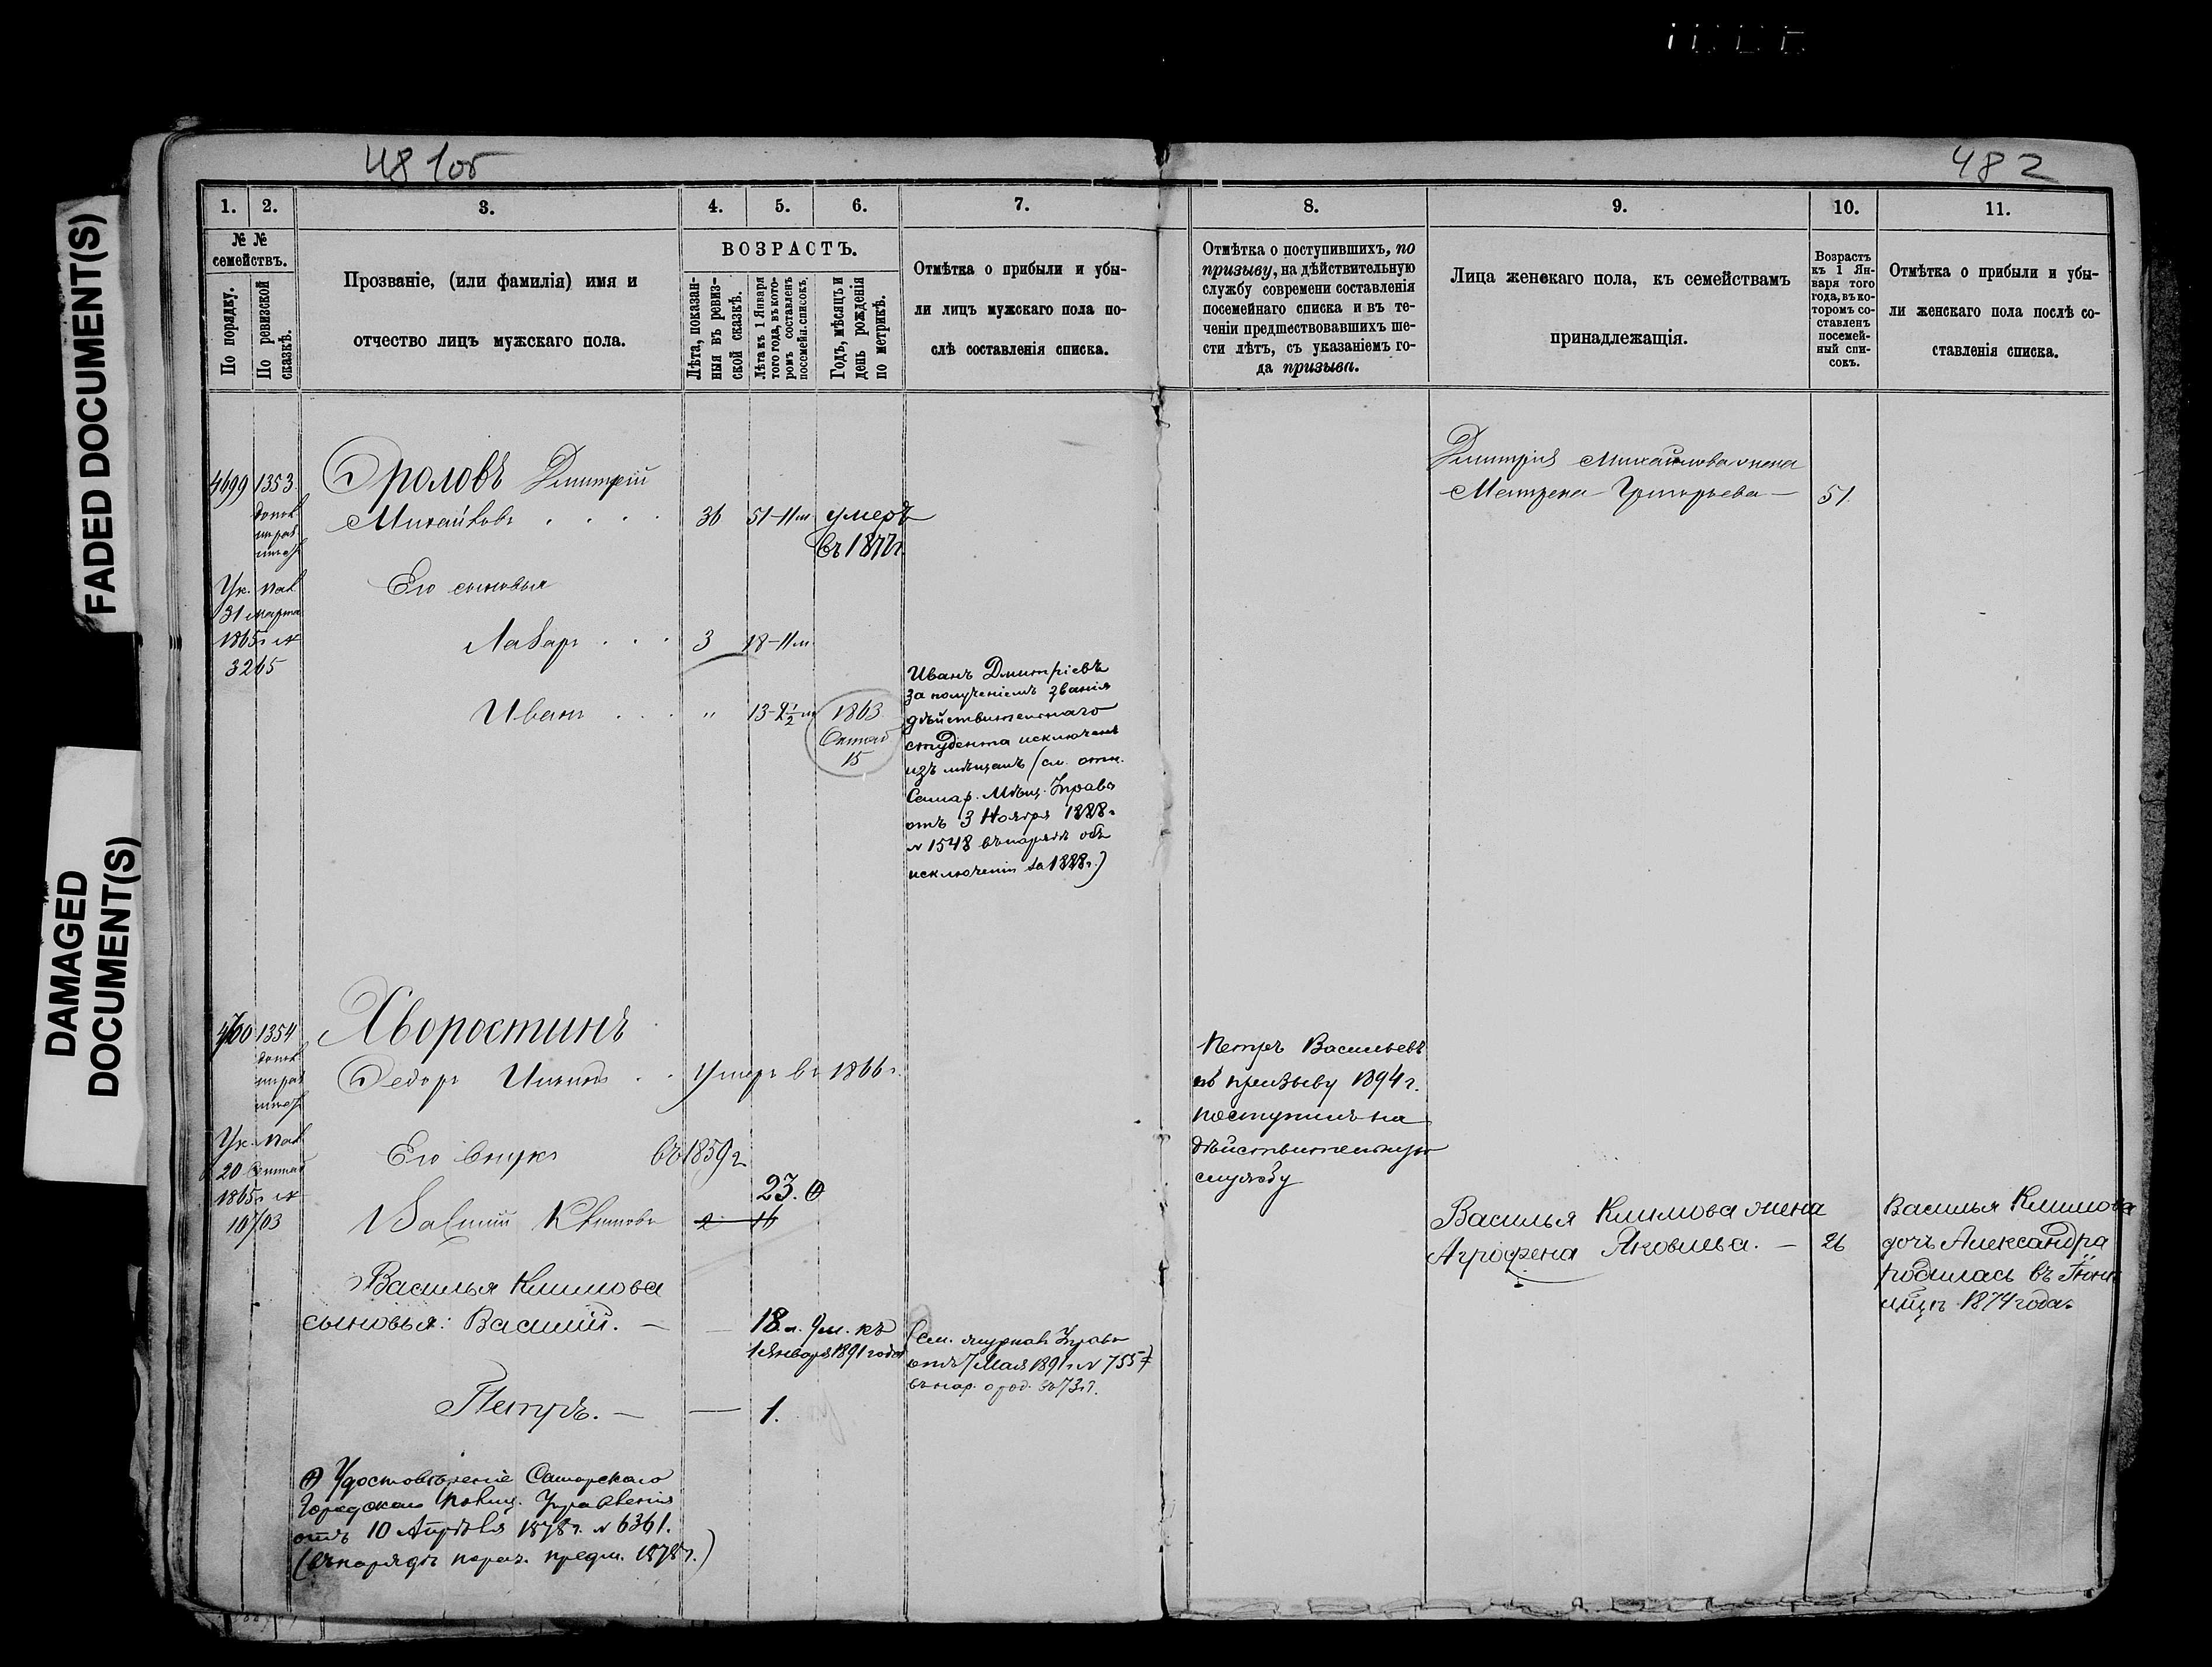 481об
482
1. 2. 3. 4. 5. 6. 7. 8. 9. 10. 11.
№ №
семействъ.
По порядку.
По ревизской
сказкѣ.
Прозваніе, (или фамилія) имя и
отчество лицъ мужскаго пола.
ВОЗРАСТЪ.
Лѣта, показан-
ныя въ ревиз-
ской сказкѣ.
Лѣта къ 1 Января
того года, въ кото-
ромъ составленъ
посемейн. списокъ.
Годъ, мѣсяцъ и
день рожденія
по метрикѣ.
Отмѣтка о прибыли и убы-
ли лицъ мужскаго пола по-
слѣ составленія списка.
Отмѣтка о поступившихъ, по
призыву, на дѣйствительную
службу современи составленія
посемейнаго списка и въ те-
ченіи предшествовавшихъ ше-
сти лѣтъ, съ указаніемъ го-
да призыва.
Лица женскаго пола, къ семействамъ
принадлежащія.
Возрастъ
къ 1 Ян-
варя того
года, въ ко-
торомъ со-
ставленъ
посемей-
ный спи-
сокъ.
Отмѣтка о прибыли и убы-
ли женскаго пола послѣ со-
ставленія списка.
4699 1353
Ук. Пал
31 марта
1865 г. №
3265
Фроловъ Дмитрій
Михайловъ 36 51-11м умеръ
въ 1877г.
Его сыновья
Лазарь 3 18-11м
Иванъ " 13-2½м 1863
Октяб
15
Иванъ Дмитріевъ
за полученіемъ званія
дѣйствительнаго
студента исключенъ
изъ мѣщанъ (см. отн.
Самар. Мѣщ. Управы
отъ 3 Ноября 1888г.
№ 1548 въ нарядѣ объ
исключеніи за 1888г.)
Дмитрія Михайлова жена
Матрена Григорьева — 51.
4700 1354
Ук. Пал
20 Сентяб
1865 г. №
10703
Хворостинъ
Федоръ Умеръ въ 1866 г.
Его внукъ въ 1859 г
23. ⊕
Василій Климовъ 2 16
Василья Климова
сыновья: Василій. — — 18 л. 9 м. къ
1 Января 1891 года
(см. журналъ Управы
отъ 7 Мая 1891 г. № 755
въ нар. о род. въ 73 г.
Петръ. — — 1.
⊕ Удостовѣреніе Самарскаго
Городскаго Полиц. Управленія
отъ 10 Апрѣля 1878 г. № 6361.
(въ нарядѣ предм. 1878 г.)
Петръ Васильевъ
по призыву 1894 г.
поступилъ на
дѣйствительную
службу
Василья Климова жена
Агрофена Яковлева. — 26
Василья Климова
дочь Александра
родилась въ
1874 года.
FADED DOCUMENT(S)
DAMAGED
DOCUMENT(S)